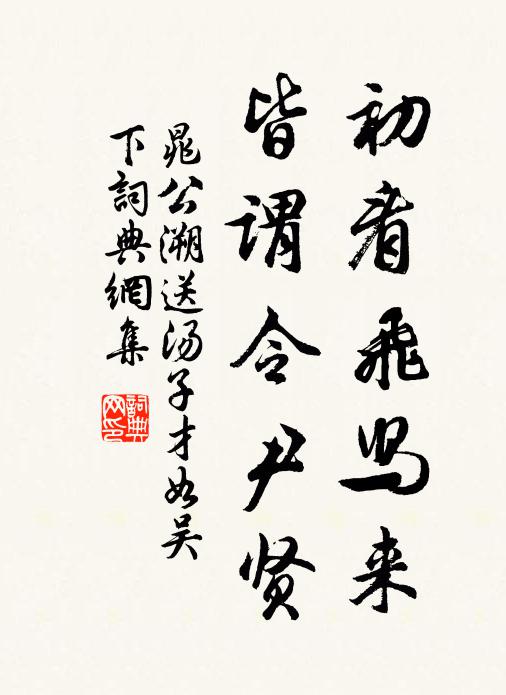 初者飛舄来
皆谓令尹贤
晁公溯送汤子才如吴
下詞典網集
詞典網印